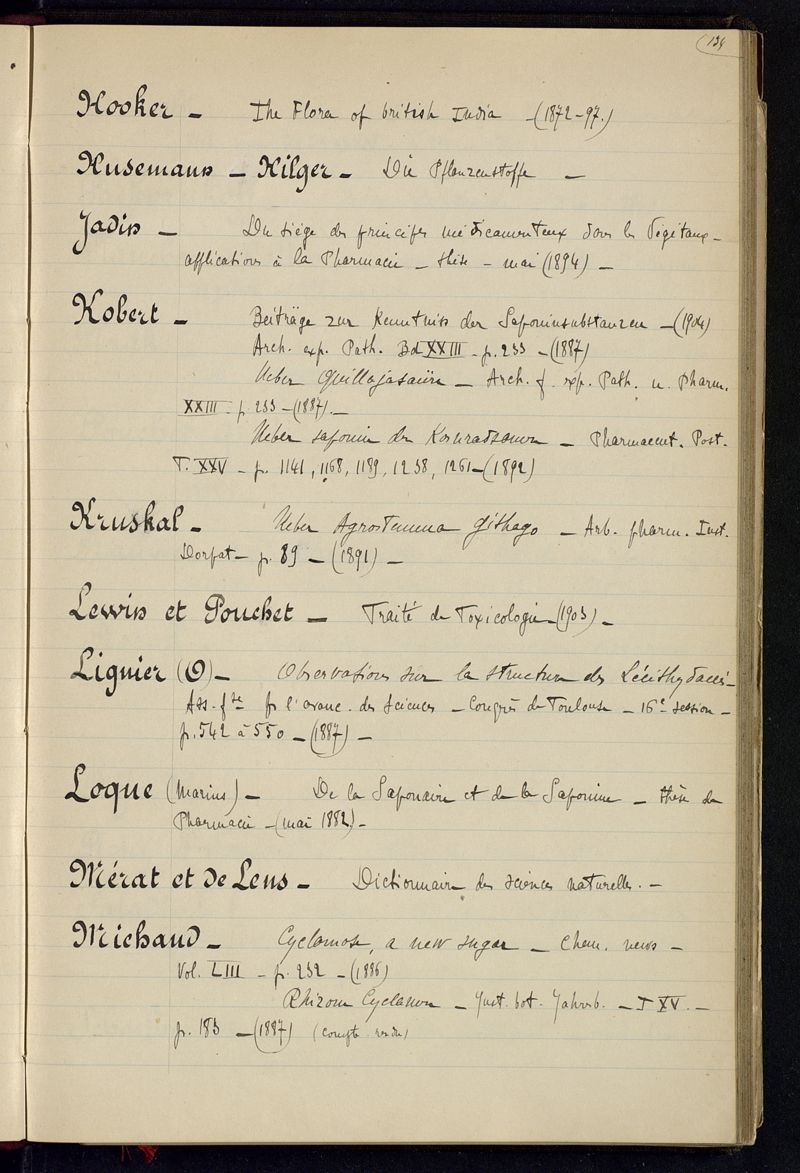 134
Hooker — The Flora of british India — (1872-97.)
Husemann — Hilger — Die Pflanzenstoffe —
Jadin — Du siége des principes médicamenteux dans les Végétaux —
applications à la Pharmacie — thèse — mai (1894) —
Kobert — Beiträge zur Kenntniss der Saponinsubstanzen — (1904)
Arch. exp. Path. Bd XXIII — p. 233 — (1887)
Ueber Quillajasaüre — Arch. f. exp. Path. u. Pharm.
XXIII — p. 233 — (1887). —
Ueber saponin der — Pharmaceut. Post.
T. XXV — p. 1141, 1168, 1189, 1238, 1261 — (1892)
Kruskal — Ueber Agrostemma githago — Arb. pharm. Inst.
Dorpat — p. 89 — (1891) —
Lewin et Pouchet — Traité de Toxicologie — (1903) —
Lignier (O) — Observations sur la structure des Lécithydacées —
Ass. fse pr l'avanc. des Sciences — Congrès de Toulouse — 16e session —
p. 542 à 550 — (1887) —
Loque (Marius) — De la Saponaire et de la Saponine — thèse de
Pharmacie — (mai 1882) —
Mérat et de Lens — Dictionnaire des sciences naturelles. —
Michaud — Cyclamose, a new sugar — Chem. news —
Vol. LIII — p. 232 — (1886)
Rhizom Cyclamen — Just. bot. Jahresb. — T XV. —
p. 183 — (1887) (compte rendu)